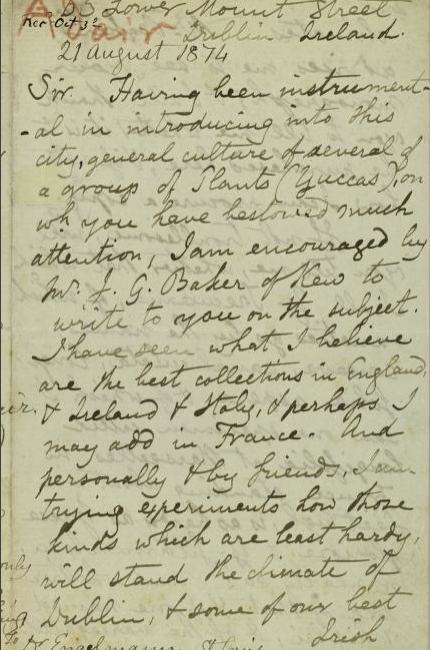 Adair
63 Lower Mount Street
Rec Oct 3d
Dublin Ireland.
21 August 1874
Sir. Having been instrument-
-al in introducing into this
city, general culture of several of
a group of Plants (Yuccas), on
wh. you have bestowed much
attention, I am encouraged by
Mr. J. G. Baker of Kew to
write to you on the subject.
I have seen what I believe
are the best collections in England,
& Ireland & Italy, & perhaps I
may add in France. And
personally & by friends, I am
trying experiments how those
kinds which are least hardy,
will stand the climate of
Dublin, & some of our best
Irish
Dr Engelmann St Louis